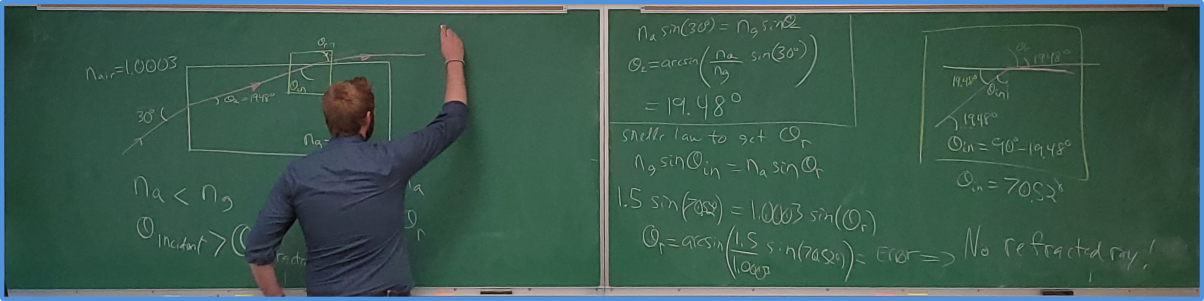 n_air = 1.0003
30°
θ_2 = 19.48°
θ_in
n_g =
n_a < n_g
θ_incident >
n_a sin(30°) = n_g sinθ_2
θ_2 = arcsin(n_a/n_g sin(30°))
= 19.48°
snells law to get θ_r
n_g sinθ_in = n_a sinθ_r
1.5 sin(70.52°) = 1.0003 sin(θ_r)
θ_r = arcsin(1.5/1.0003 sin(70.52°)) = Error ⟹ No refracted ray!
19.48°
19.48°
θ_in
19.48°
θ_in = 90° - 19.48°
θ_in = 70.52°